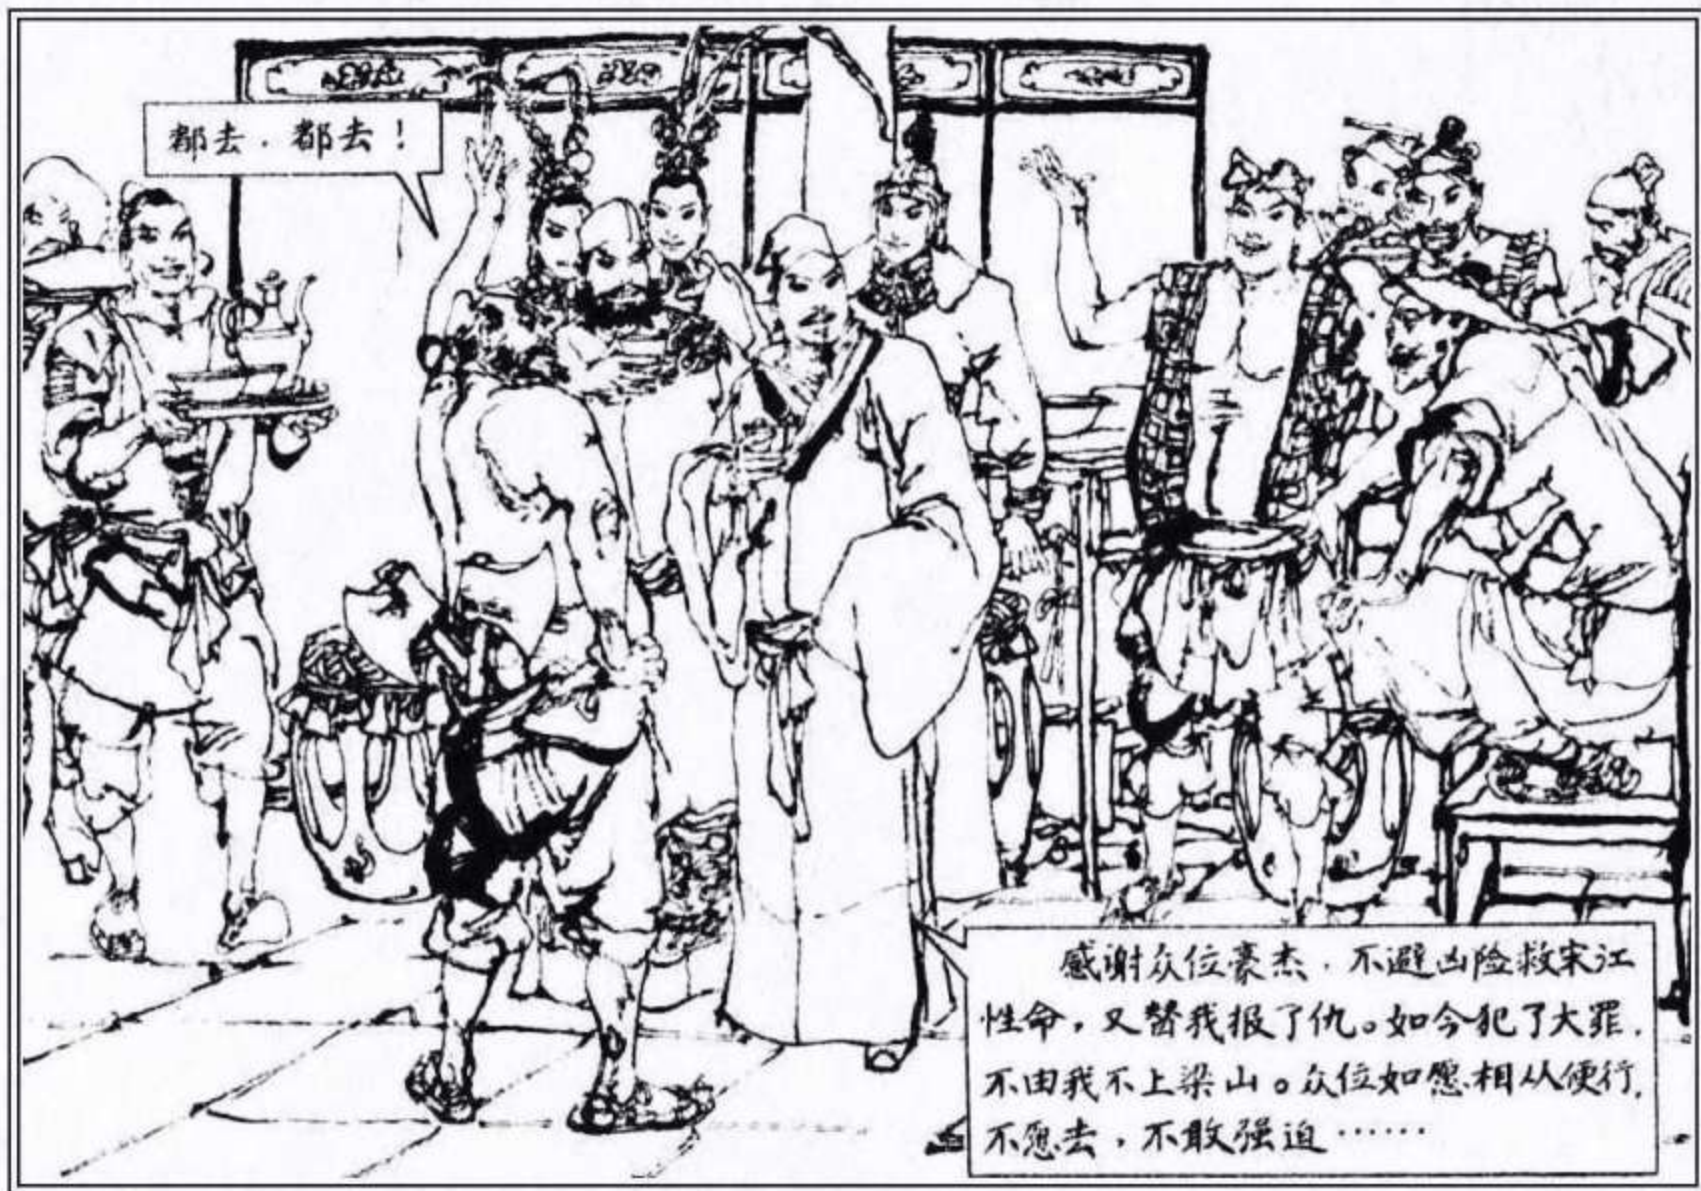 都去，都去！
感谢众位豪杰，不避凶险救宋江
性命，又替我报了仇。如今犯了大罪，
不由我不上梁山。众位如愿相从便行，
不愿去，不敢强迫……